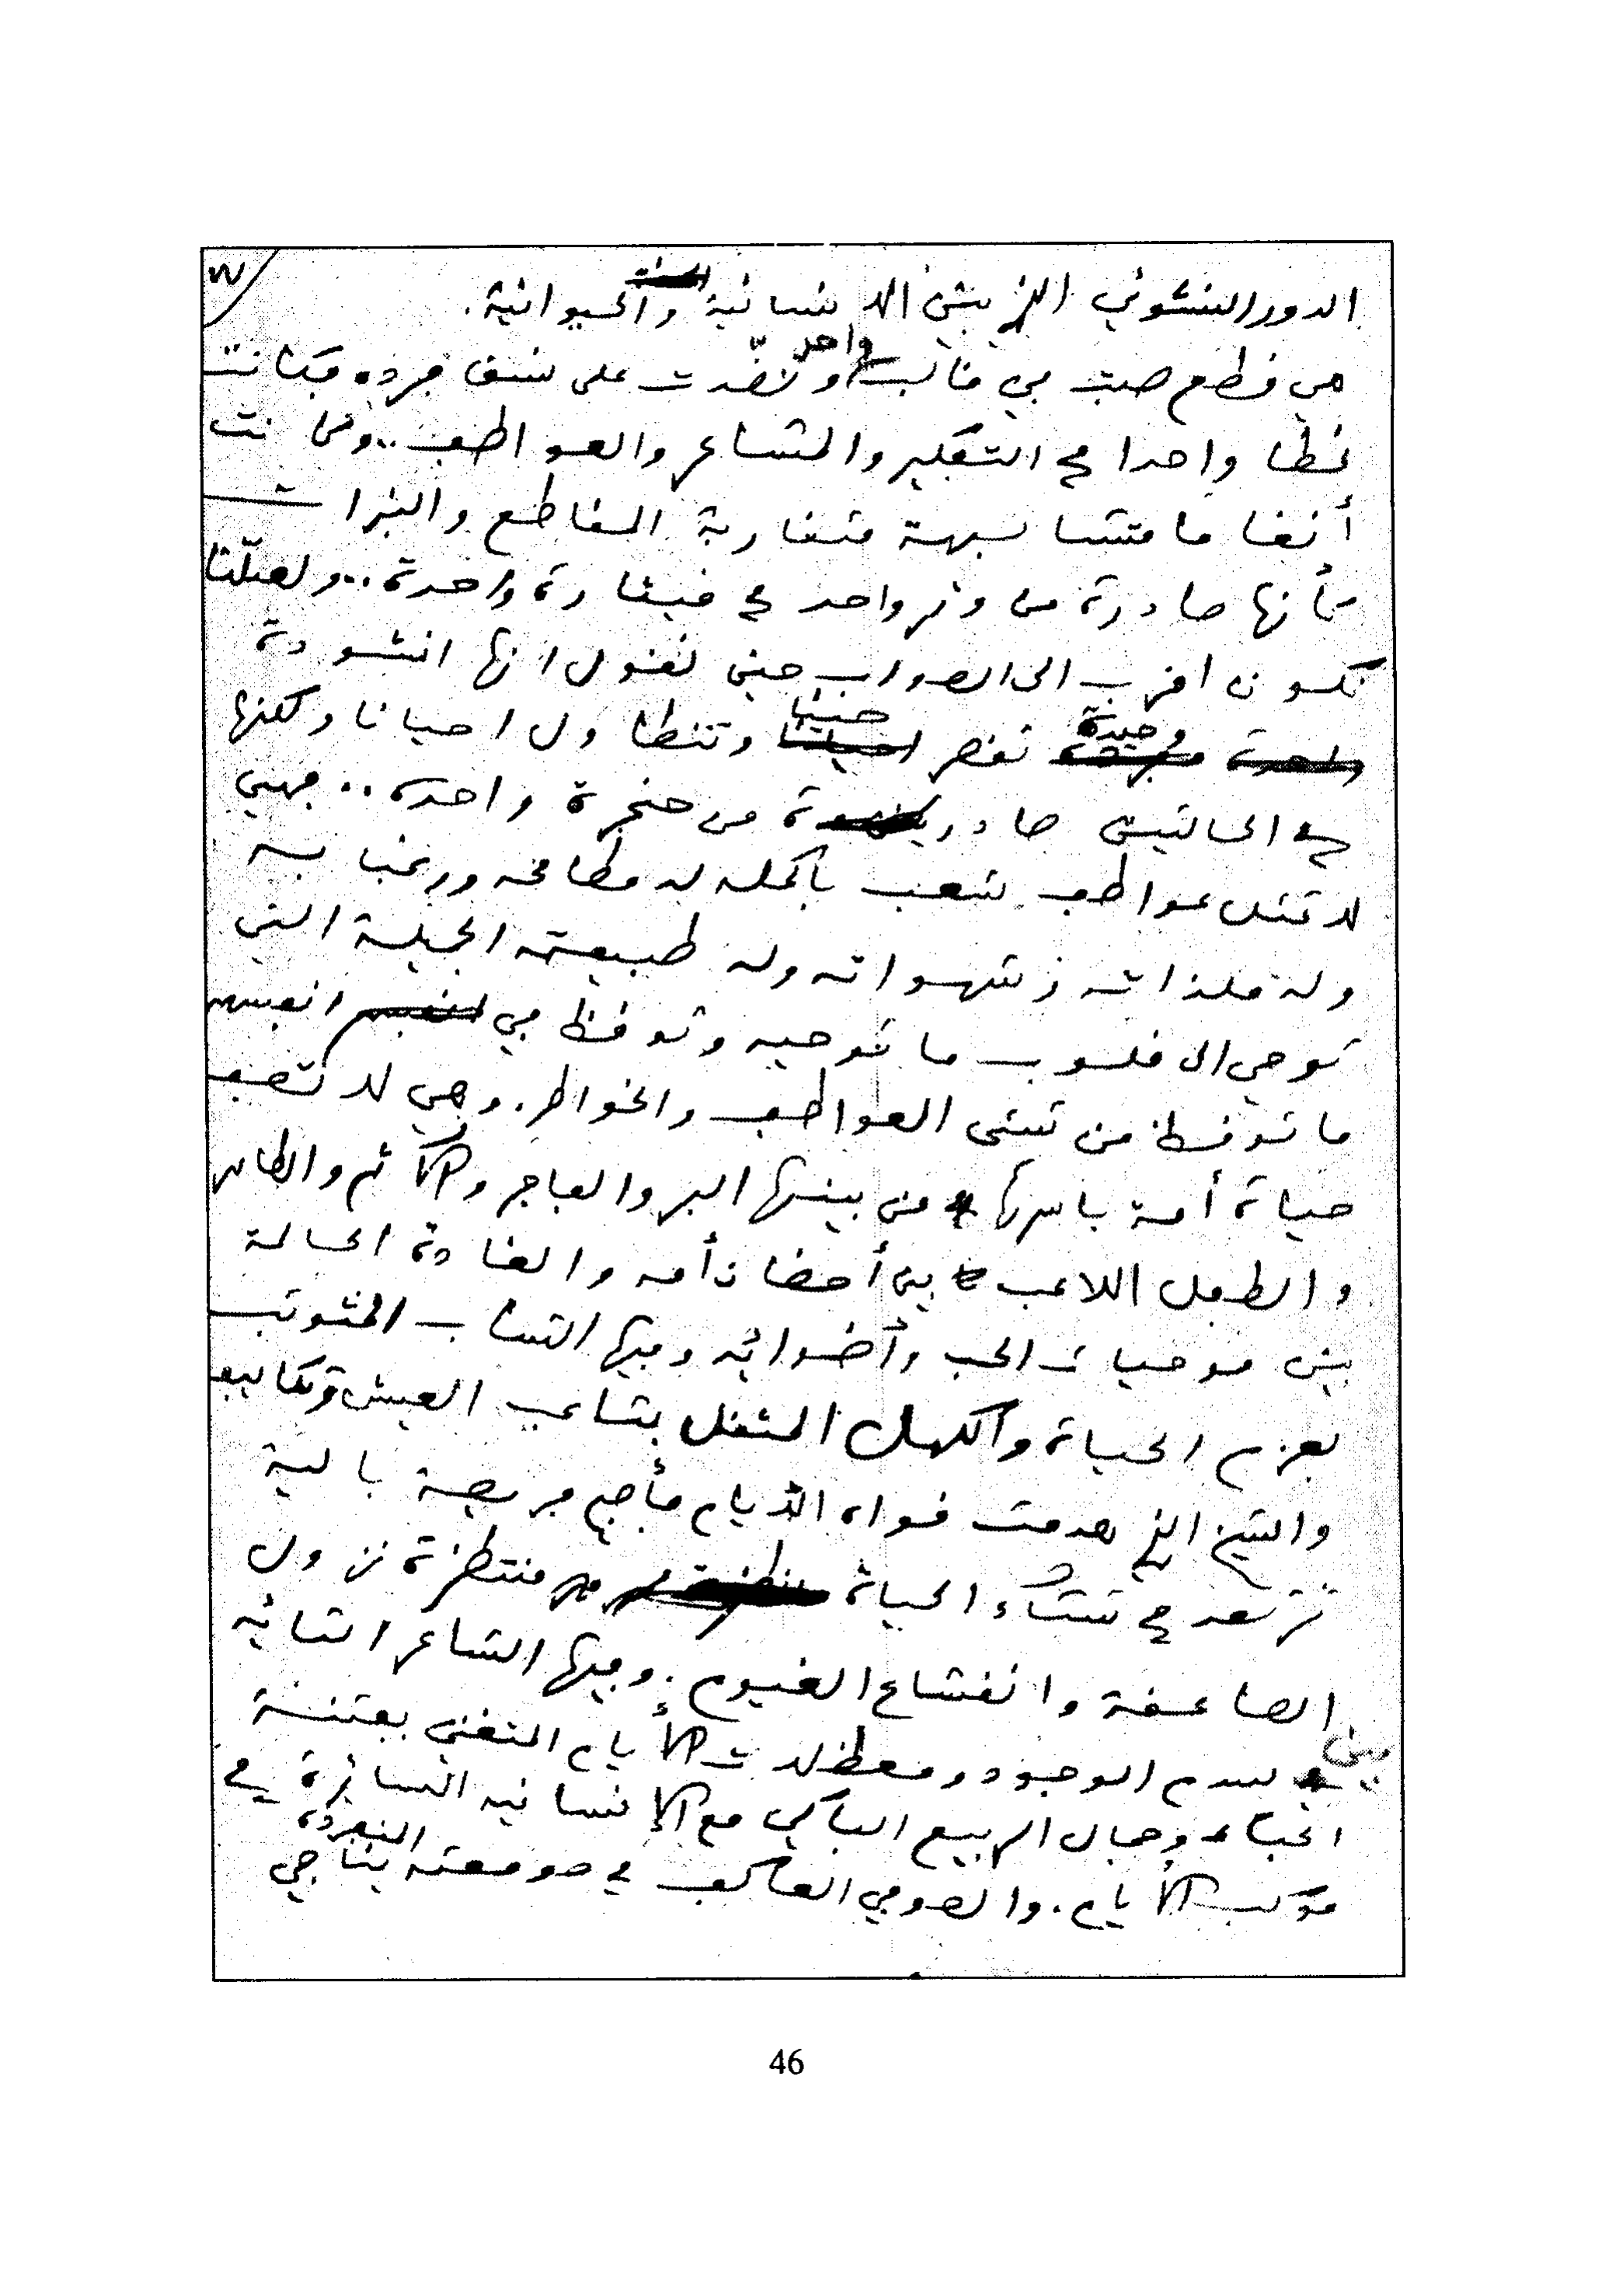 ٣
الدور النشوئي الذي بين الانسانية والحيوانية.
هي قطع صبت في قالب واحد ونضّدت على نسق فرد فكانت
نمطا واحدا في التفكير والمشاعر والعواطف.. وكانت
أنغاما متشابهة متقاربة المقاطع والنبرات
كأنها صادرة من وتر واحد في قيثارة واحدة.. ولعلّنا
نكون اقرب الى الصواب حين نقول انها انشودة
وحيدة تقصر حينا وتتطاول احيانا ولكنها
في الحالتين صادرة من حنجرة واحدة.. فهي
لا تمثل عواطف شعب بأكمله له مطامحه ورغباته
وله ملذاته وشهواته وله طبيعته الجميلة التي
توحي الى قلوب ما توحيه وتوقظ في انفس
ما توقظ من شتى العواطف والخواطر. وهي لا تصف
حياة أمة باسرها من بينها البر والفاجر والآثم والطاهر
والطفل اللاعب بين أحضان أمه والغادة الحالمة
بين موحيات الحب وأضوائه وفيها الشاب المتوثب
لعزم الحياة والكهل المثقل بمتاعب العيش وتكاليفه
والشيخ الذي هدمت قواه الأيام فأضحى فريصة بالية
ترتعد في شتاء الحياة منتظرة نزول
الصاعقة وانقشاع الغيوم. وفيها الشاعر التائه
بين سدم الوجود ومعظلات الأيام المتغني بفتنة
الحياة وجمال الربيع الباكي مع الإنسانية السائرة في
موكب الأيام. والصوفي العاكف في صومعته المنفردة يناجي
46